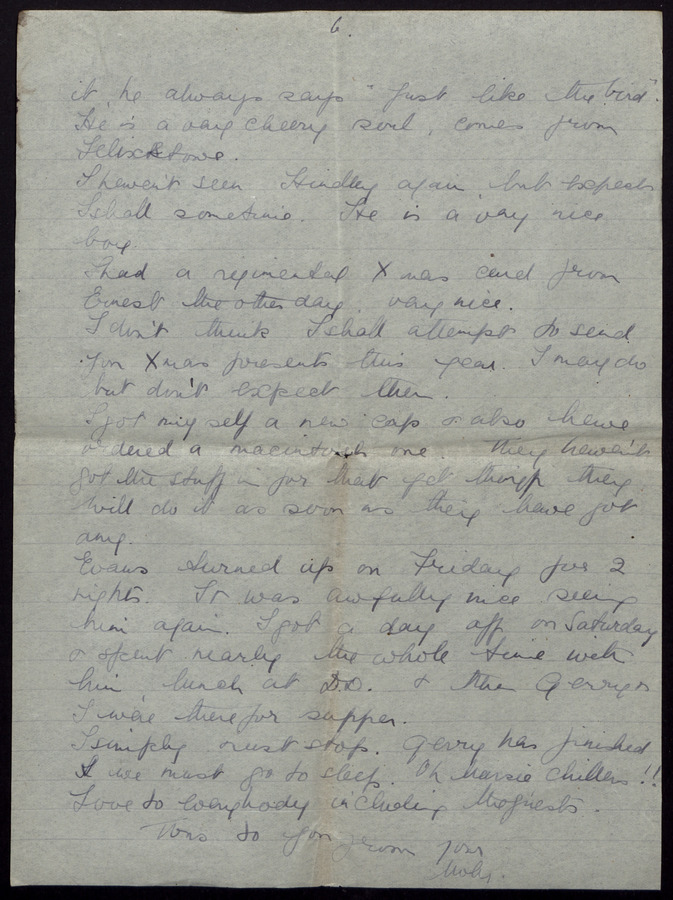 6.
it, he always says "Just like the bird".
He is a very cheery soul, comes from
Felixstowe.
I haven't seen Hindley again, but expects
I shall sometime. He is a very nice
boy.
I had a regimental Xmas card from
Ernest the other day, very nice.
I don't think I shall attempt to send
you Xmas presents this year. I may do
but don't expect them.
I got myself a new cap & also have
ordered a macintosh one. They haven't
got the stuff in for that yet though they
will do it as soon as they have got
any.
Evans turned up on Friday for 2
nights. It was awfully nice seeing
him again. I got a day off on Saturday
& spent nearly the whole time with
him, lunch at D.O. & then Gerry &
I were there for supper.
I simply must stop. Gerry has finished
& we must go to sleep. Oh Massie chillen!!
Love to everybody including the guests.
Tons to you from your